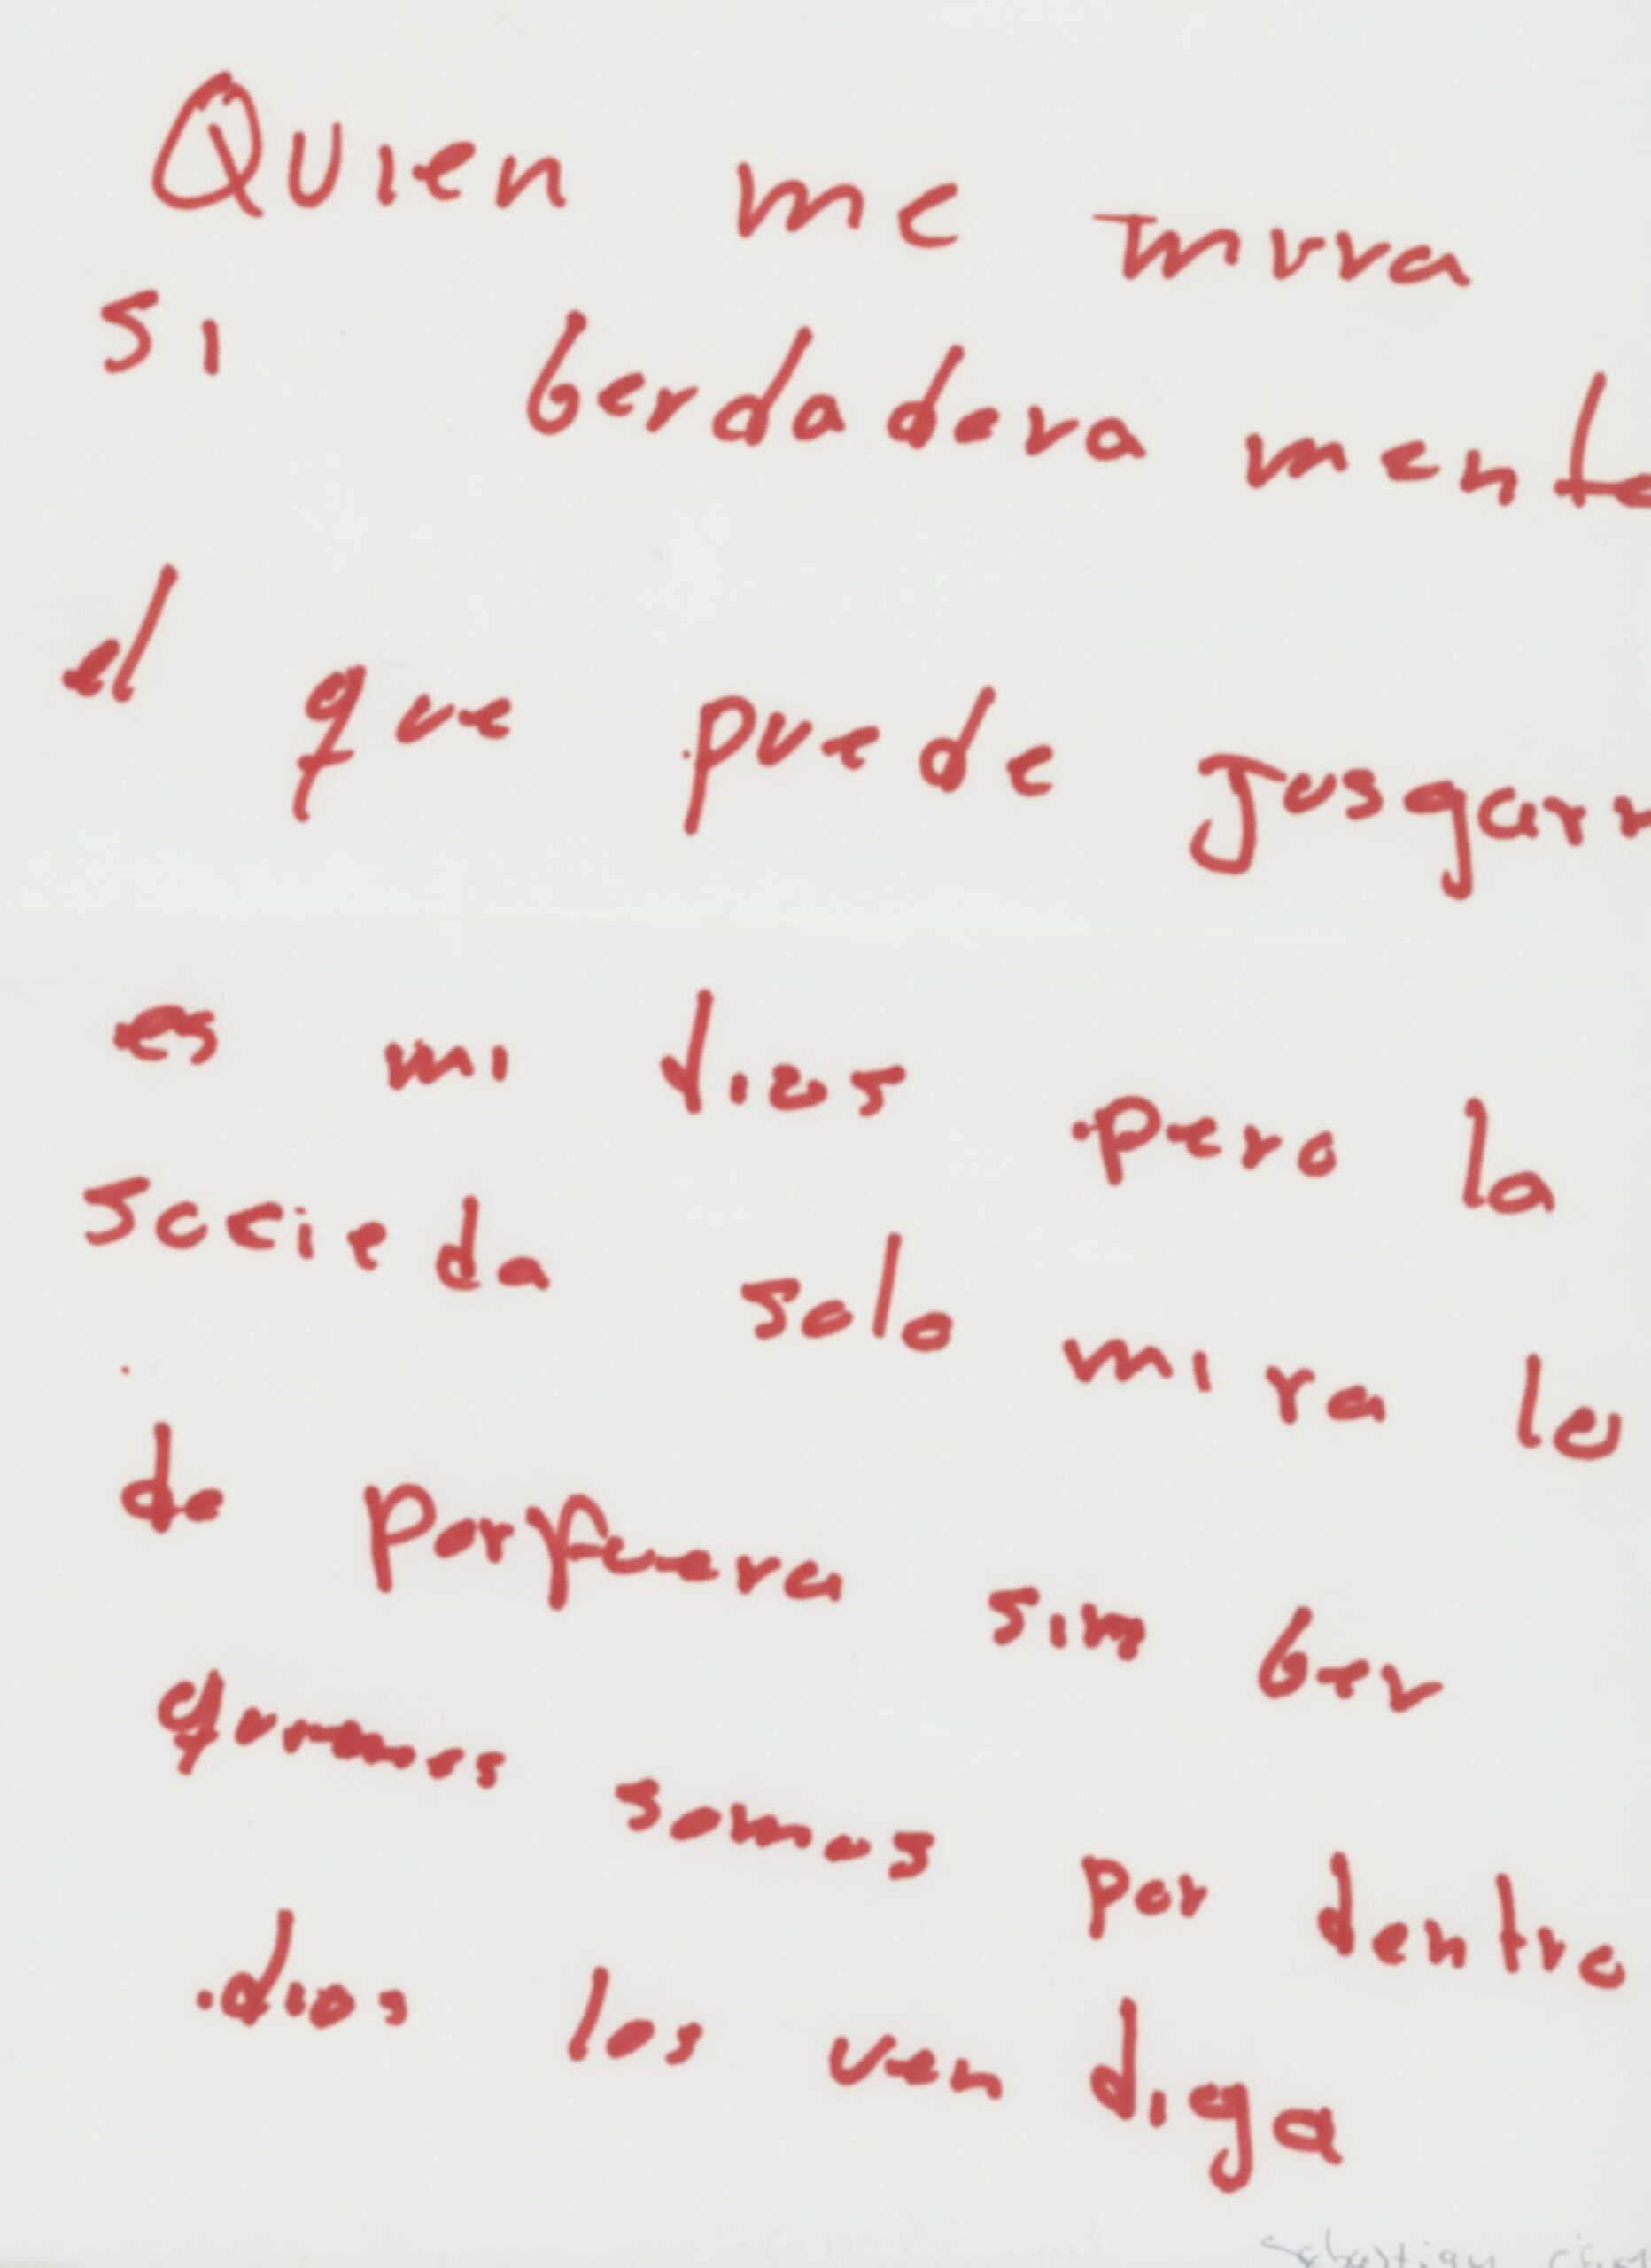 Quien me mira
si berdadera mente
el que puede Jusgarm
es mi dios pero la
sccieda solo mira lo
de porfuera sin ber
quienes somos por dentro
dios los ven diga
Sebastian